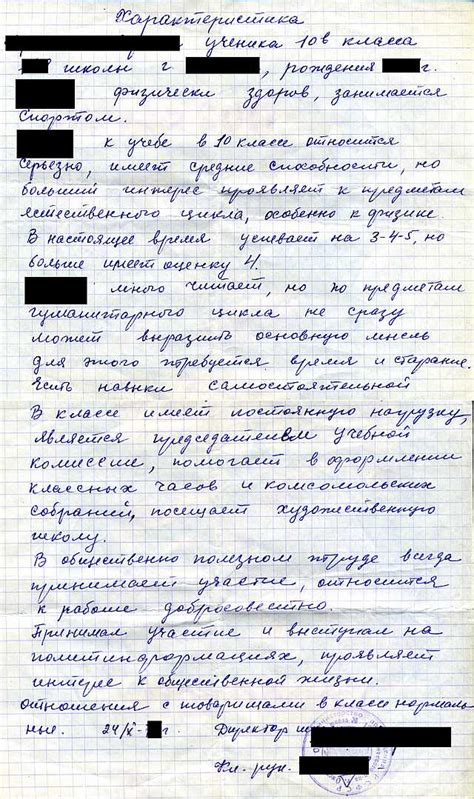 Характеристика
ученика 10в класса
школы г , рождения г.
физически здоров, занимается
спортом.
к учебе в 10 классе относится
серьезно, имеет средние способности, но
больший интерес проявляет к предметам
естественного цикла, особенно к физике.
В настоящее время успевает на 3-4-5, но
больше имеет оценку 4.
много читает, но по предметам
гуманитарного цикла не сразу
может выразить основную мысль
для этого требуется время и старание.
Есть навыки самостоятельной
В классе имеет постоянную нагрузку,
является председателем учебной
комиссии, помогает в оформлении
классных часов и комсомольских
собраний, посещает художественную
школу.
В общественно полезном труде всегда
принимает участие, относится
к работе добросовестно.
Принимал участие и выступал на
политинформациях, проявляет
интерес к общественной жизни.
Отношения с товарищами в классе нормаль-
ные. 24/X- г. Директор
Кл. рук.